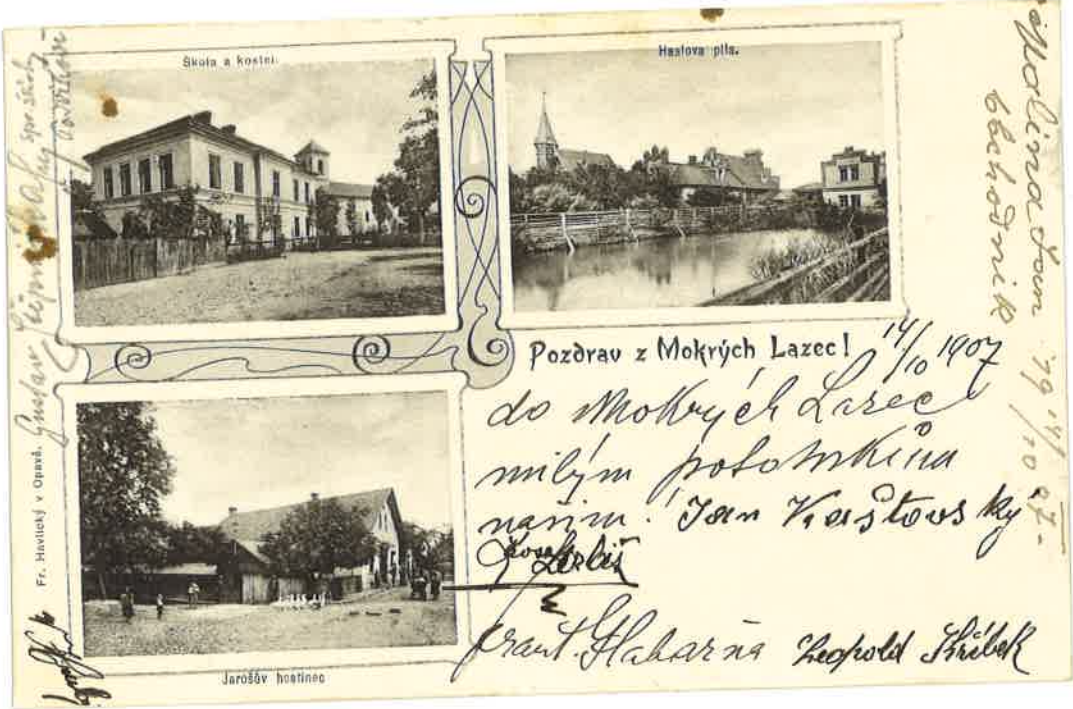 Škola a kostel.
Haslova pila.
Pozdrav z Mokrých Lazec!
14/10 1907
do Mokrých Lazec
milým potomkům
našim. Jan Kraštovský
Josef
Frant. Habarna Leopold Hříbek
Jarošův hostinec
Fr. Havlický v Opavě.
Gustav
spr. školy
Malina Jan
obchodník
19 14/10 07.